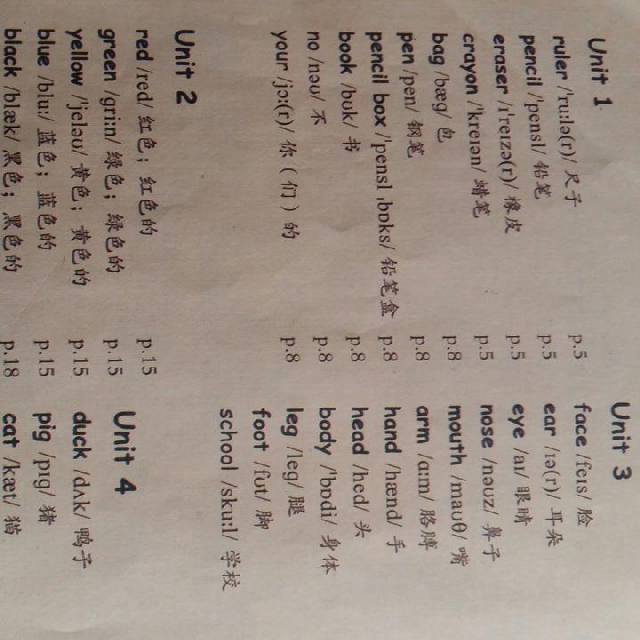 Unit 1
ruler /'ruːlə(r)/ 尺子 p.5
pencil /'pensl/ 铅笔 p.5
eraser /ɪ'reɪzə(r)/ 橡皮 p.5
crayon /'kreɪən/ 蜡笔 p.5
bag /bæg/ 包 p.8
pen /pen/ 钢笔 p.8
pencil box /'pensl ˌbɒks/ 铅笔盒 p.8
book /bʊk/ 书 p.8
no /nəʊ/ 不 p.8
your /jɔː(r)/ 你（们）的 p.8
Unit 2
red /red/ 红色；红色的 p.15
green /griːn/ 绿色；绿色的 p.15
yellow /'jeləʊ/ 黄色；黄色的 p.15
blue /bluː/ 蓝色；蓝色的 p.15
black /blæk/ 黑色；黑色的 p.18
Unit 3
face /feɪs/ 脸
ear /ɪə(r)/ 耳朵
eye /aɪ/ 眼睛
nose /nəʊz/ 鼻子
mouth /maʊθ/ 嘴
arm /ɑːm/ 胳膊
hand /hænd/ 手
head /hed/ 头
body /'bɒdi/ 身体
leg /leg/ 腿
foot /fʊt/ 脚
school /skuːl/ 学校
Unit 4
duck /dʌk/ 鸭子
pig /pɪg/ 猪
cat /kæt/ 猫